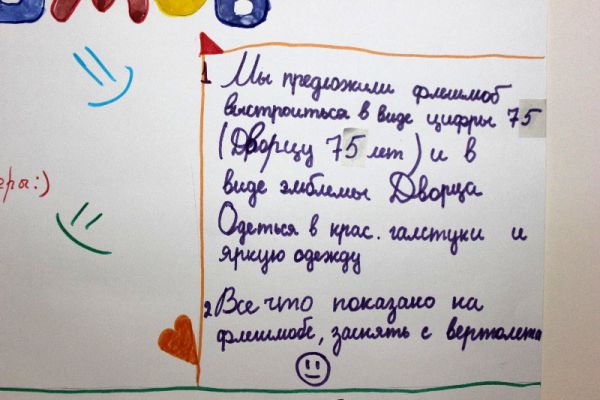 1 Мы предложили флешмоб
выстроиться в виде цифры 75
(Дворцу 75 лет) и в
виде эмблемы Дворца
Одеться в крас. галстуки и
яркую одежду
2 Все что показано на
флешмобе, заснять с вертолета